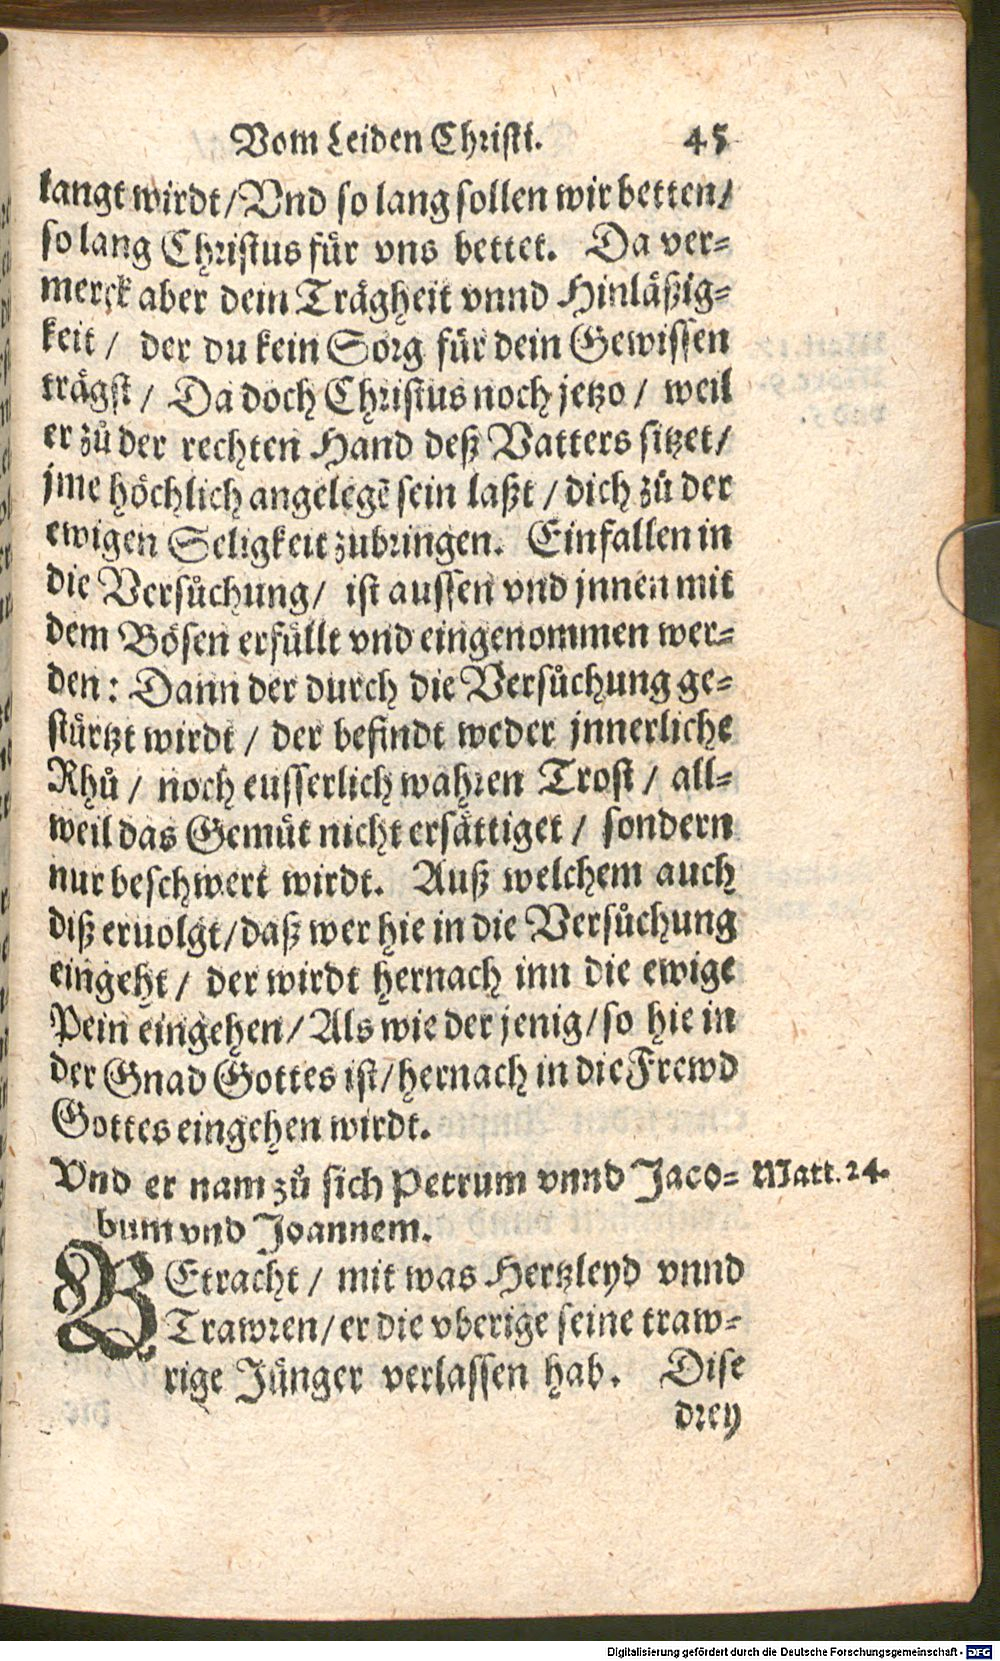 Vom Leiden Christi. 45
langt wirdt/Vnd so lang sollen wir betten/
so lang Christus für vns bettet. Da ver=
merck aber dein Trägheit vnnd Hinläßig=
keit / der du kein Sorg für dein Gewissen
trägst / Da doch Christus noch jetzo / weil
er zů der rechten Hand deß Vatters sitzet/
jme höchlich angelegẽ sein laßt / dich zů der
ewigen Seligkeit zubringen. Einfallen in
die Versůchung/ ist aussen vnd jnnen mit
dem Bösen erfüllt vnd eingenommen wer=
den: Dann der durch die Versůchung ge=
stürtzt wirdt / der befindt weder jnnerliche
Rhů / noch eusserlich wahren Trost / all=
weil das Gemüt nicht ersättiget / sondern
nur beschwert wirdt. Auß welchem auch
diß eruolgt/daß wer hie in die Versůchung
eingeht / der wirdt hernach inn die ewige
Pein eingehen/Als wie der jenig/so hie in
der Gnad Gottes ist/hernach in die Frewd
Gottes eingehen wirdt.
Vnd er nam zů sich Petrum vnnd Jaco= Matt.24.
bum vnd Joannem.
BEtracht / mit was Hertzleyd vnnd
Trawren/er die vberige seine traw=
rige Jünger verlassen hab. Dise
drey
Digitalisierung gefördert durch die Deutsche Forschungsgemeinschaft - DFG